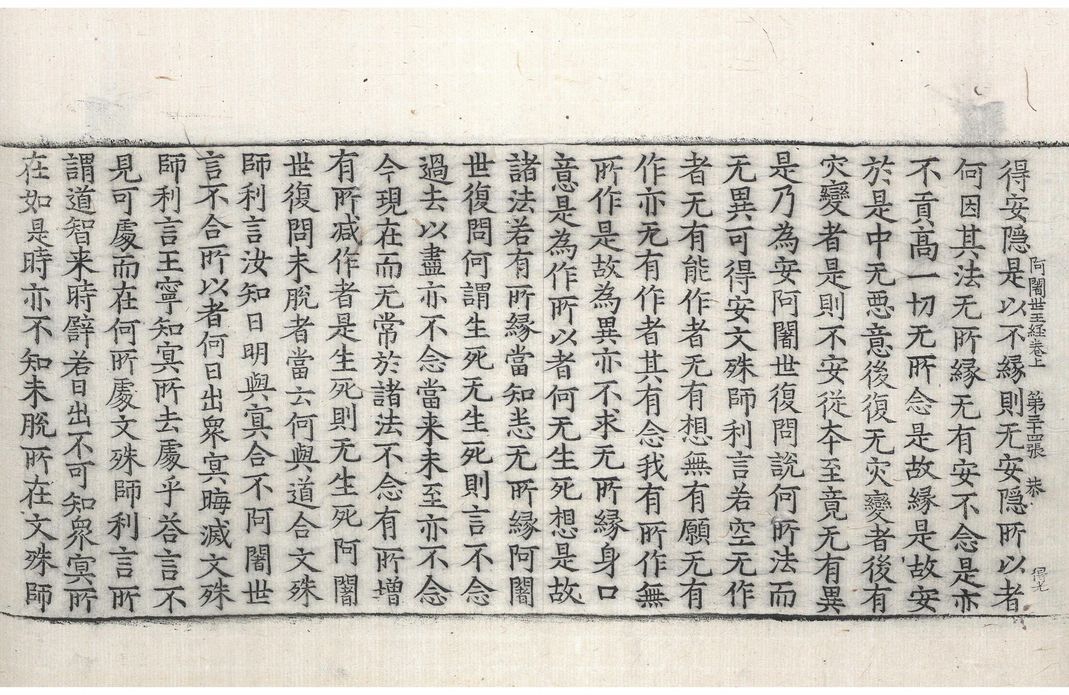 阿闍世王経卷上　第二十四張　恭
得安隠是以不縁則无安隠所以者
何因其法无所縁无有安不念是亦
不貢高一切无所念是故縁是故安
於是中无悪意後復无灾變者後有
灾變者是則不安従夲至竟无有異
是乃為安阿闍世復問說何所法而
无異可得安文殊師利言若空无作
者无有能作者无有想無有願无有
作亦无有作者其有念我有所作無
所作是故為異亦不求无所縁身口
意是為作所以者何无生死想是故
諸法若有所縁當知悉无所縁阿闍
世復問何謂生死无生死則言不念
過去以盡亦不念當来未至亦不念
今現在而无常於諸法不念有所增
有所减作者是生死則无生死阿闍
世復問未脫者當云何與道合文殊
師利言汝知日明與㝠合不阿闍世
言不合所以者何日出衆㝠晦滅文殊
師利言王寧知㝠所去處乎荅言不
見可處而在何所處文殊師利言所
謂道智来時譬若日出不可知衆㝠所
在如是時亦不知未脫所在文殊師